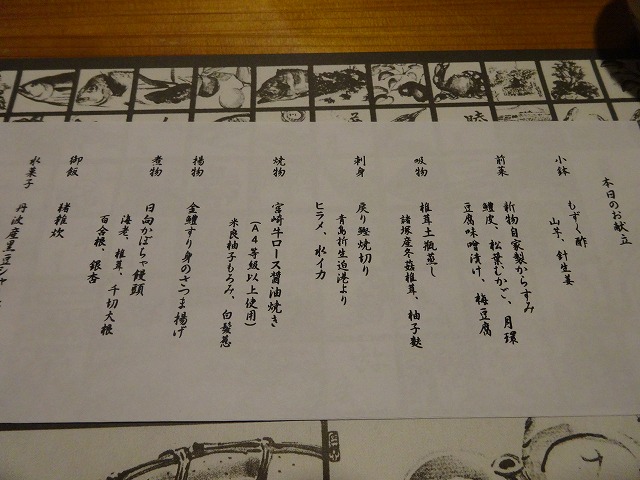 本日のお献立
小鉢　もずく酢
山芋、針生姜
前菜　新物自家製からすみ
鱧皮、松葉むかご、月環
豆腐味噌漬け、梅豆腐
吸物　椎茸土瓶蒸し
諸塚産冬菇椎茸、柚子麩
刺身　炙り鰹焼切り
青島折生迫港より
ヒラメ、水イカ
焼物　宮崎牛ロース醤油焼き
（A４等級以上使用）
米良柚子もろみ、白髪葱
揚物　金鱧すり身のさつま揚げ
煮物　日向かぼちゃ饅頭
海老、椎茸、千切大根
百合根、銀杏
御飯　猪雑炊
水菓子　丹波産黒豆シャ